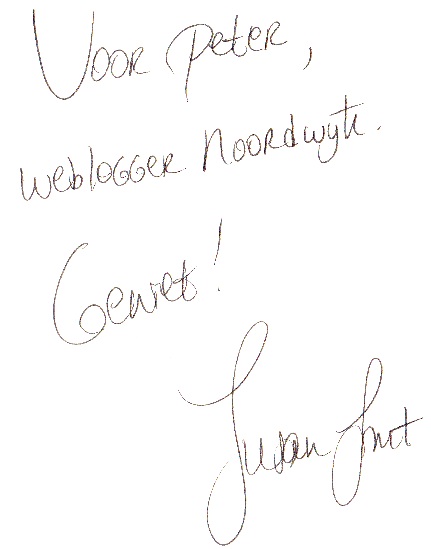 Voor Peter,
weblogger Noordwijk.
Geniet!
Susan Smit